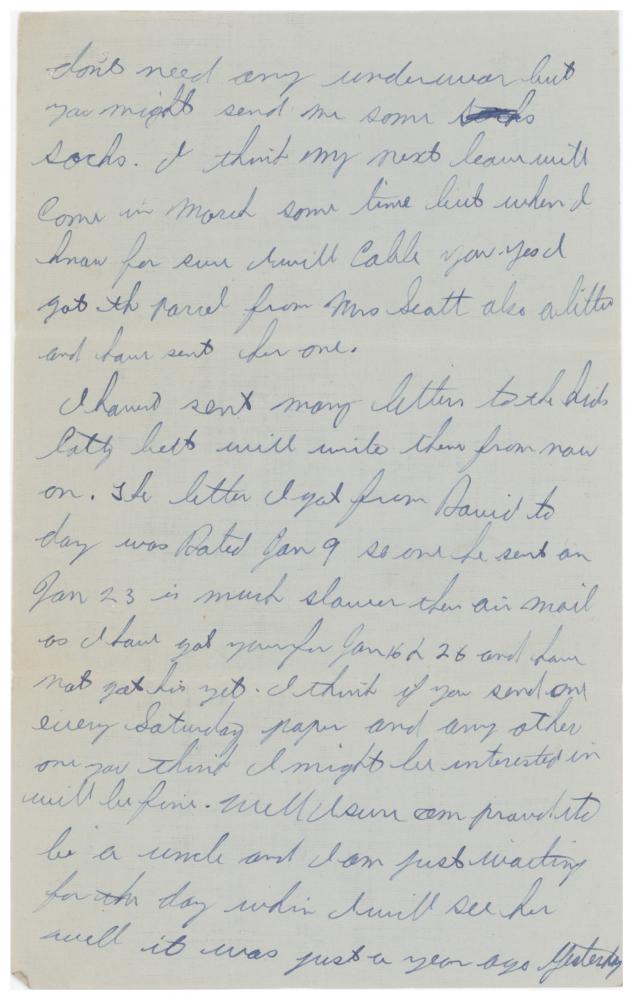 dont need any underwear but
you might send me some
socks. I think my next leave will
Come in March some time but when I
know for sure I will Cable you. yes I
got th parcel from Mrs Scott also a letter
and have sent her one.
I havent sent many letters to the kids
latly but will write them from now
on. The letter I got from David to
day was Dated Jan 9 so one he sent on
Jan 23 is much slower then air mail
as I have got your for Jan 16 & 26 and have
not got his yet. I think if you send one
every Saturday paper and any other
one you think I might be interested in
will be fine. Well I sure am proud to
be a uncle and I am just waiting
for the day when I will see her
well it was just a year ago Yesterday